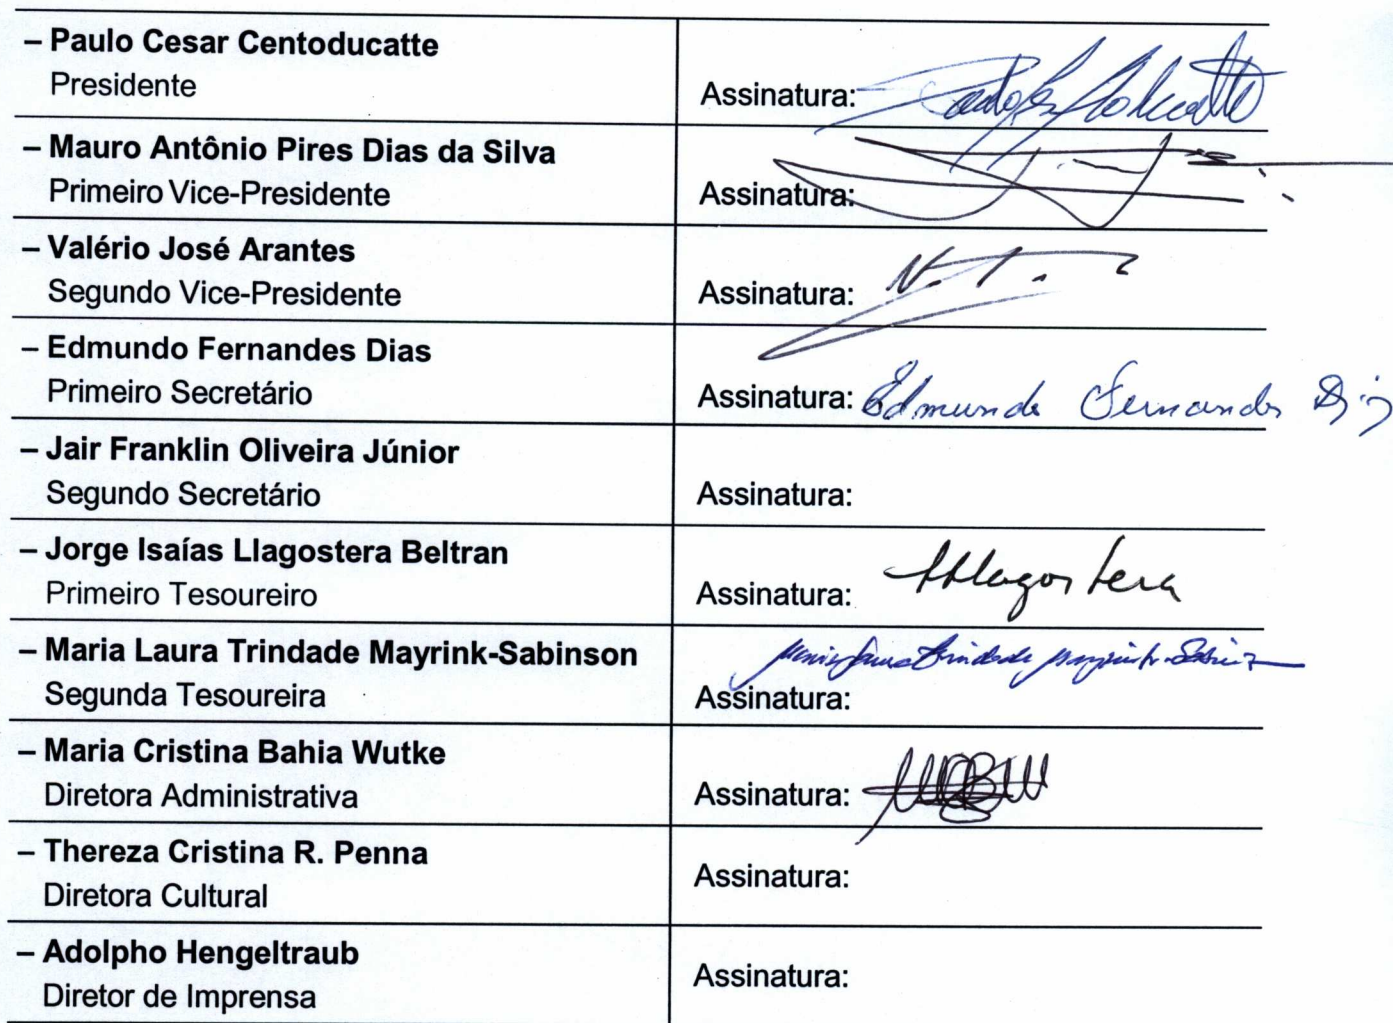 – Paulo Cesar Centoducatte
Presidente
Assinatura:
– Mauro Antônio Pires Dias da Silva
Primeiro Vice-Presidente
Assinatura:
– Valério José Arantes
Segundo Vice-Presidente
Assinatura:
– Edmundo Fernandes Dias
Primeiro Secretário
Assinatura: Edmundo Fernandes Dias
– Jair Franklin Oliveira Júnior
Segundo Secretário
Assinatura:
– Jorge Isaías Llagostera Beltran
Primeiro Tesoureiro
Assinatura: Llagostera
– Maria Laura Trindade Mayrink-Sabinson
Segunda Tesoureira
Maria Laura Trindade Mayrink-Sabinson
Assinatura:
– Maria Cristina Bahia Wutke
Diretora Administrativa
Assinatura:
– Thereza Cristina R. Penna
Diretora Cultural
Assinatura:
– Adolpho Hengeltraub
Diretor de Imprensa
Assinatura: